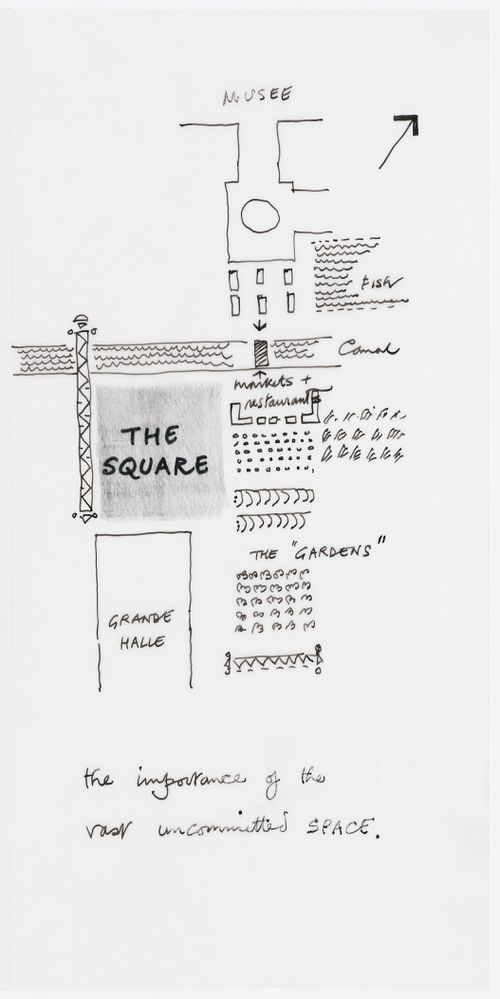 MUSEE
FISH
Canal
markets +
restaurants
THE
SQUARE
THE "GARDENS"
GRANDE
HALLE
the importance of the
vast uncommitted SPACE.